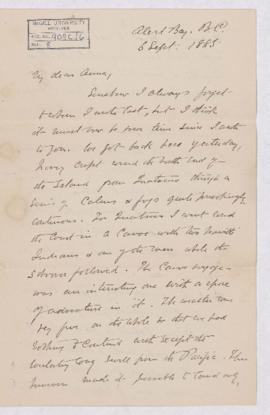 McGILL UNIVERSITY
ARCHIVES
ACC. NO.
REF. 8
Alert Bay, B.C.
6 Sept: 1885.
My dear Anna,
Somehow I always forget
when I wrote last, but I think
it must now be some time since I wrote
to you. We got back here yesterday,
having crept round the north end of
the Island from Quatsino through a
series of Calms & fogs quite provokingly
continuous. For Quatsino I went round
the Coast in a Canoe with two
Indians & one of the men while the
Schooner followed. The Canoe voyage
was an interesting one with a spice
of adventure in it. The weather was
very fine on the whole so that we had
nothing to Contend with except the
long swell from the Pacific. This
however made it possible to land only